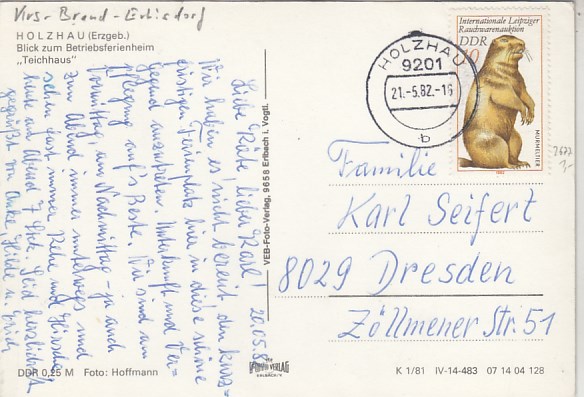 Krs. Brand-Erbisdorf
HOLZHAU (Erzgeb.)
Blick zum Betriebsferienheim
"Teichhaus"
Liebe Käte, lieber Karl! 20.05.82
Wir haben es nicht bereut, den kurz-
fristigen Ferienplatz hier in diese schöne
Gegend anzutreten. Unterkunft und Ver-
pflegung auf's Beste. Wir sind am
Vormittag, am Nachmittag - ja auch
am Abend immer unterwegs und
sehen fast immer Rehe und Hirsche,
heute am Abend 7 Stck. Seid herzlichst
gegrüßt von Anke, Hilde u. Erich
VEB-Foto-Verlag, 9658 Erlbach i. Vogtl.
HOLZHAU
9201
21.-5.82.-16
b
Internationale Leipziger
Rauchwarenauktion
DDR
10
MURMELTIER
1982
2677
Familie
Karl Seifert
8029 Dresden
Zöllmener Str. 51
DDR 0,25 M Foto: Hoffmann
VERLAG
ERLBACH/V.
K 1/81 IV-14-483 07 14 04 128